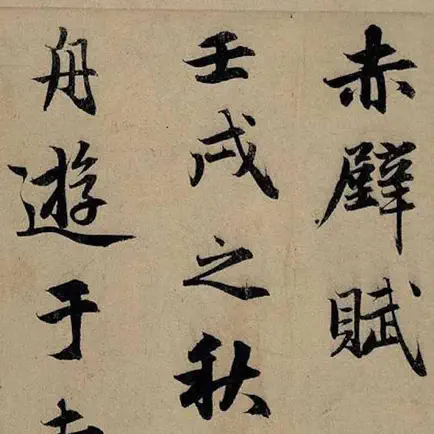 赤壁賦
壬戌之秋
舟遊于赤